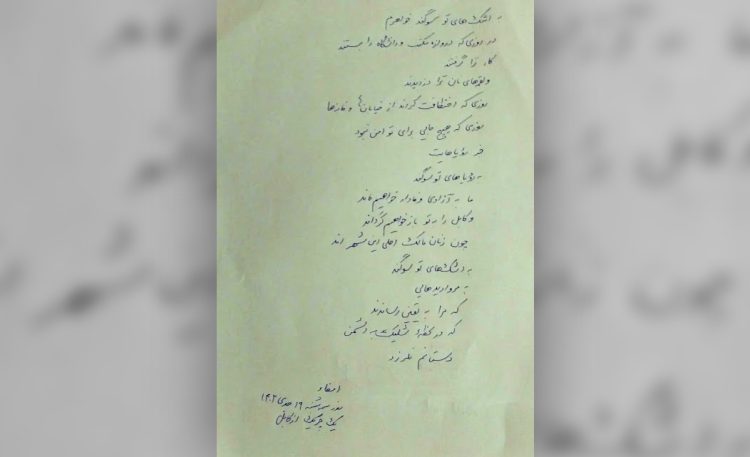 به اشک‌های تو سوگند خواهرم
در روزی که دروازه مکتب و دانشگاه را بستند
کار ترا گرفتند
و لقمه‌ای نان ترا دزدیدند
روزی که اختطافت کردند از خیابان‌ها و مغازه‌ها
روزی که هیچ جایی برای تو امن نبود
جز رؤیاهایت
به رؤیاهای تو سوگند
ما به آزادی وفادار خواهیم ماند
و کابل را به تو باز خواهیم گرداند
چون زنان مالک اصلی این شهر اند
به اشک‌های تو سوگند
به مرواریدهایی
که مرا به یقین رساندند
که در لحظه‌ی شلیک به دشمن
دستانم نلرزد
امضاء
روز سه‌شنبه ۱۹ جدی ۱۴۰۲
یک چریک از کابل